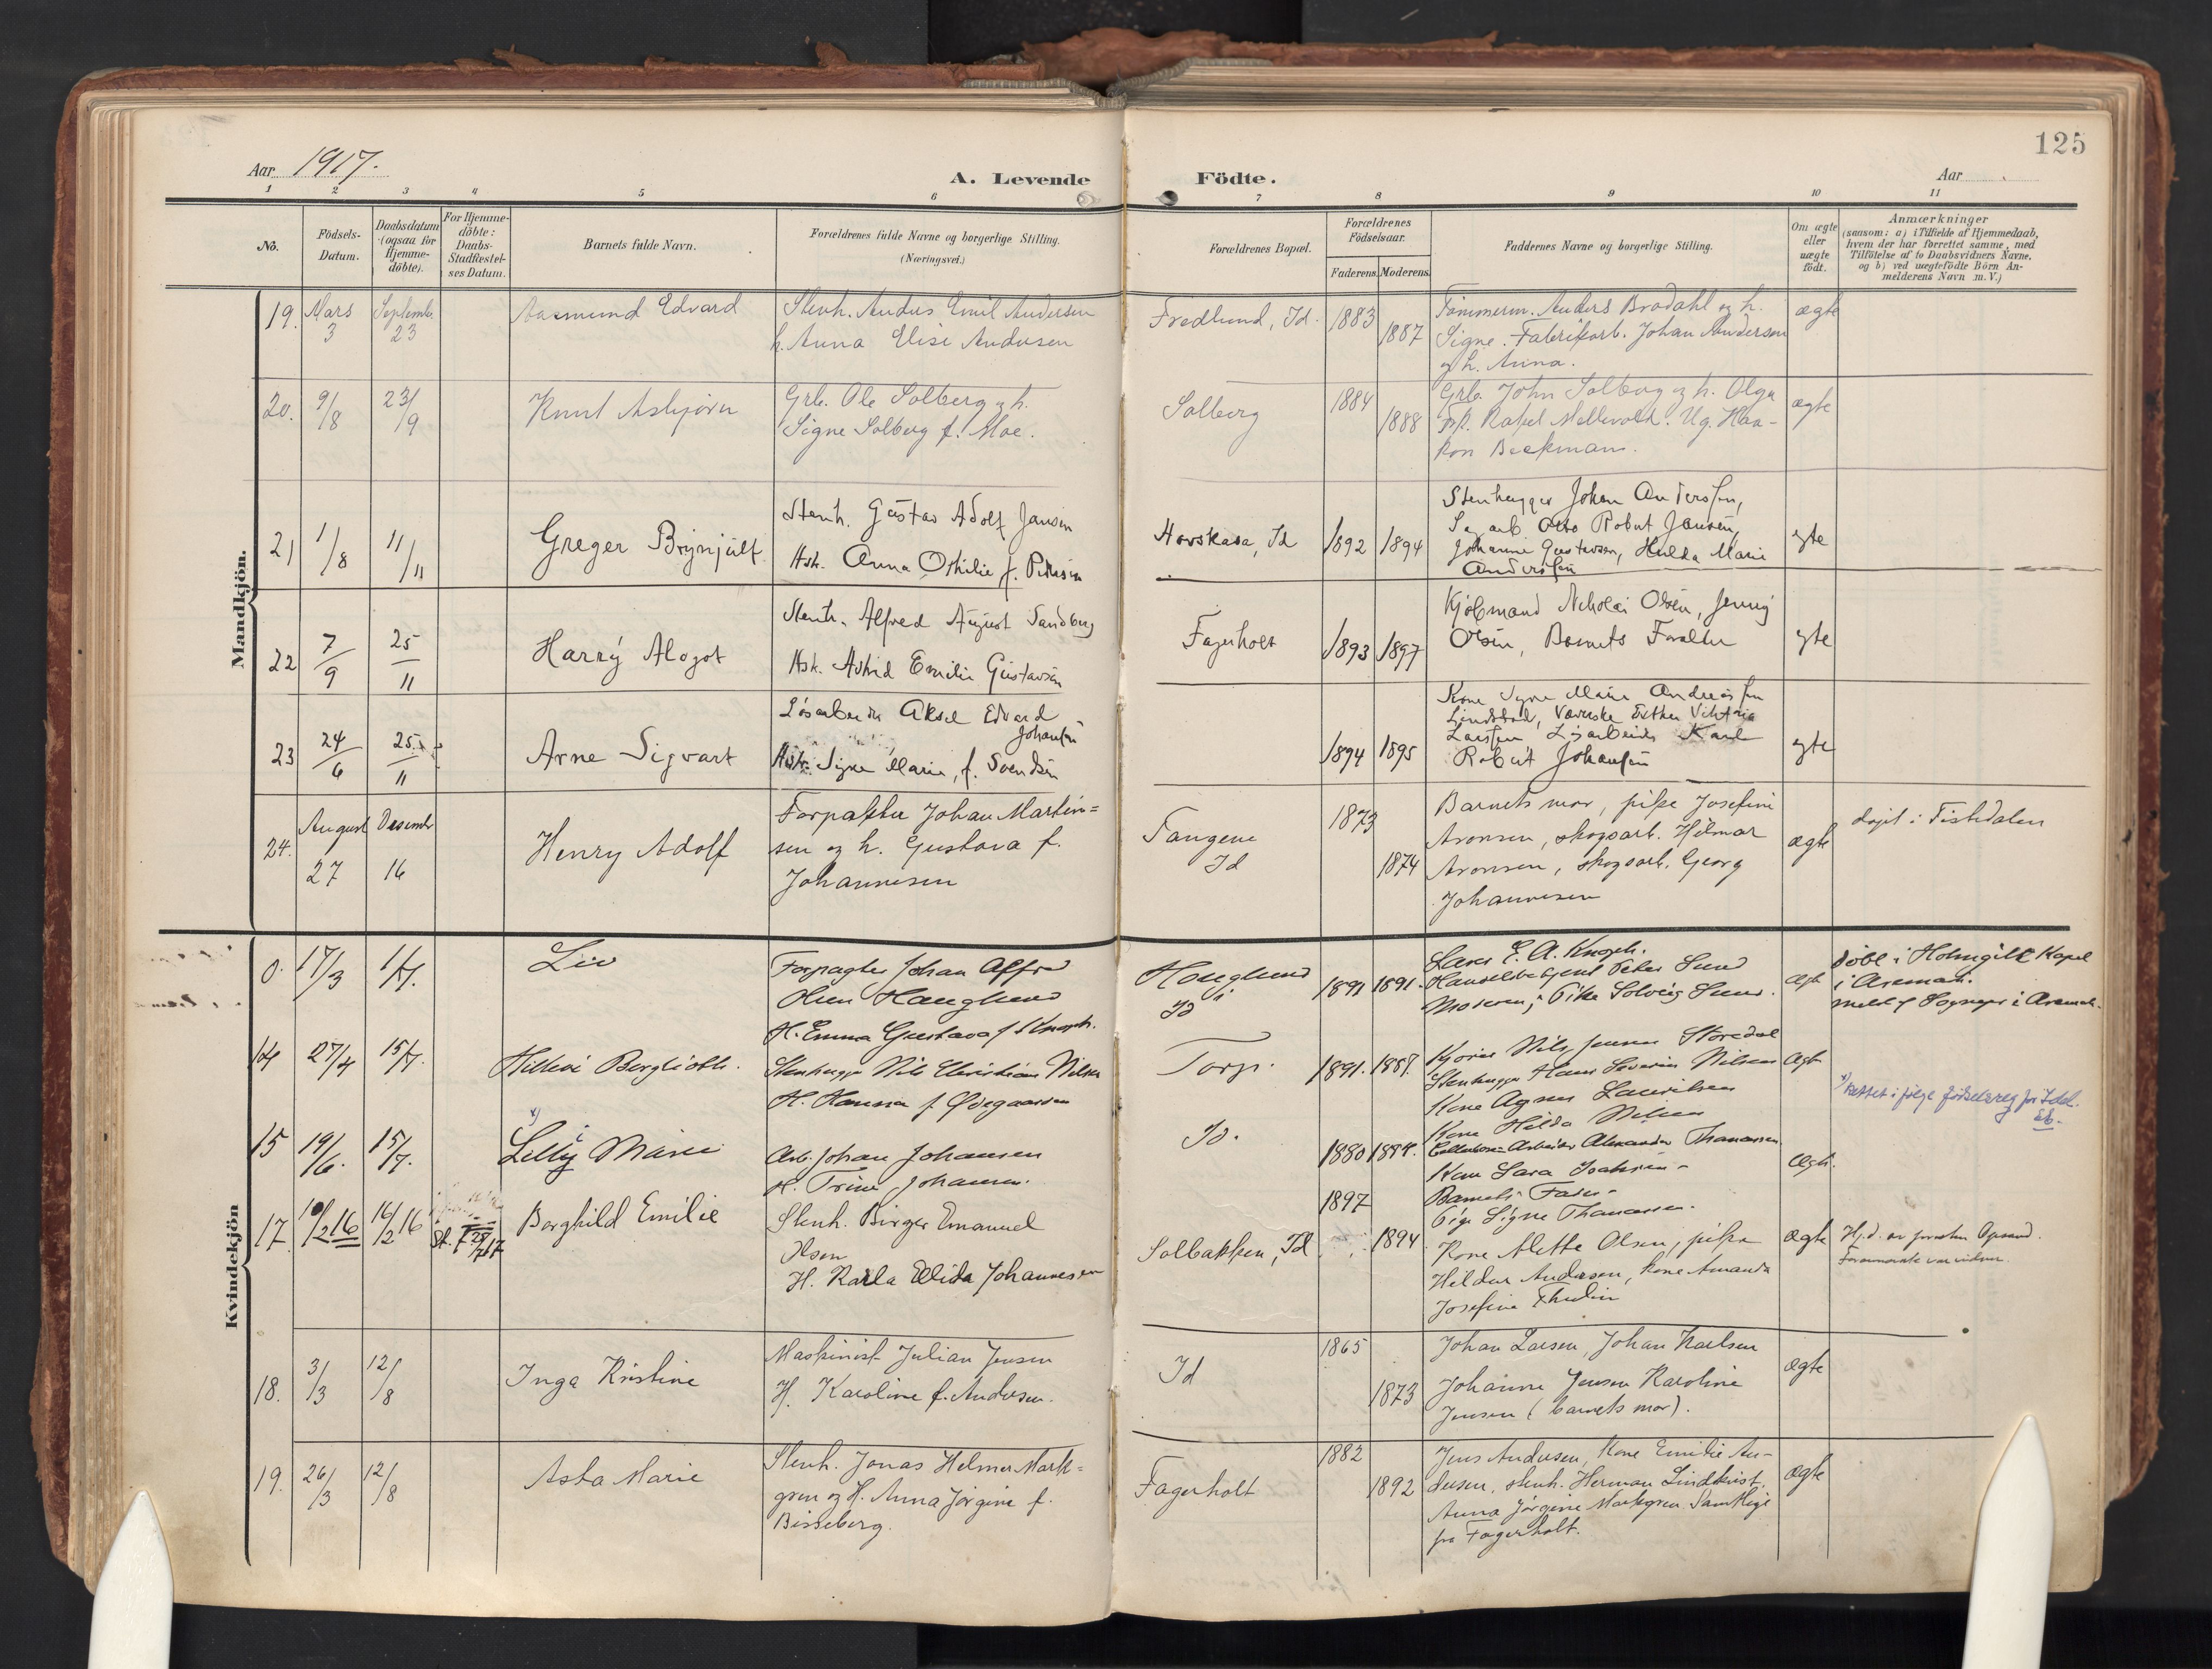 125
Aar 1917.
A. Levende Födte.
Aar
1 2 3 4 5 6 7 8 9 10 11
No.
Födsels-Datum.
Daabsdatum (ogsaa for Hjemme-döbte).
For Hjemme-döbte: Daabs-Stadfæstel-ses Datum.
Barnets fulde Navn.
Forældrenes fulde Navne og borgerlige Stilling.
(Næringsvei.)
Forældrenes Bopæl.
Forældrenes Födselsaar.
Faderens. Moderens.
Faddernes Navne og borgerlige Stilling.
Om ægte eller uægte födt.
Anmærkninger
(saasom: a) i Tilfælde af Hjemmedaab,
hvem der har forrettet samme, med
Tilföielse af to Daabsvidners Navne,
og b) ved uægtefödte Börn An-
melderens Navn m.V.)
Mandkjön.
19. Mars 3 September 23
Aasmund Edvard
Stenh. Anders Emil Andersen
h. Anna Elise Andersen
Fredlund, Id. 1883 1887
Tömmerm. Anders Bradahl og h.
Signe. Fabrikarb. Johan Andersen
og h. Anna.
ægte
20. 9/8 23/9
Knut Asbjørn
Grb. Ole Solberg og h.
Signe Solberg f. Moe.
Solberg 1884 1888
Grb. John Solberg og h. Olga
Frk. Rakel Mellevold. Ug. Haa-
kon Beckman.
ægte
21 1/8 11/11
Greger Brynjulf
Stenh. Gustav Adolf Jansen
Hstr. Anna Othilie f. Petersen
Id 1892 1894
Stenhugger Johan Anderssen,
arb. Otto Robert Jansen,
Johanne Gustavsen, Hulda Marie
Anderssen
egte
22 7/9 25/11
Harry Algot
Stenh. Alfred August Sandberg
Hstr. Astrid Emilie Gustavsen
Fagerholt 1893 1897
Kjöbmand Nikolai Olsen, Jenny
Olsen, Barnets Forældre
egte
23 24/6 25/11
Arne Sigvart
Løsarbeider Aksel Edvard
Johansen
Hstr. Signe Marie, f. Svendsen
1894 1895
Kone Signe Marie Andreassen
Lindstad, Væverske Esther Viktoria
Larsen Løsarbeider Karl
Robert Johansen
egte
24. August 27 Desember 16
Henry Adolf
Forpakter Johan Martin=
sen og h. Gustava f.
Johannesen
Tangene
Id
1873 1874
Barnets mor, pike Josefine
Aronsen, skogsarb. Hilmar
Aronsen, skogsarb. Georg
Johannesen
ægte
døpt i Tistedalen
Kvindekjön
0. 17/3 1/7.
Liv
Forpagter Johan Alfred
Olsen Hauglund
H. Emma Gustava f. Knoph.
Hauglund
i
Id
1891 1891.
Lars E. A. Knoph.
Handelsbetjent Peter Lund
Moderen, Pike Solveig Lund.
ægte
döbt i Holmgils Kapel
i Aremark.
meldt Sogneprest i Aremark.
14 27/4 15/7.
Hildevi Berglioth.
Stenhugger Nils Christian Nilsen
H. Hanna f. Ødegaarden
Torp. 1891. 1887.
Nils Jensen Storedal
Stenhugger Hans Severin Nilsen
Kone Agnes Lauritsen
Kone Hilda Nilsen
ægte
x) Rettet i følge fødselsreg for Idd.
15 19/6. 15/7.
x)
Lilly Marie
Arb. Johan Johansen
H. Trine Johansen.
Id. 1880 1884.
Cellulose-Arbeider Alexander Thomassen
Kone Sara
Barnets Fader
Pige Signe Thomassen.
ægte.
17. 10/2 16 16/2 16 St. 29/7 17
Borghild Emilie
Stenh. Birger Emanuel
Olsen
H. Karla Elida Johannesen
Solbakken, Id 1897 1894
Kone Alette Olsen, pike
Hildur Andersen, kone Amanda
Josefine Thulin
ægte
Hj.d. av
18. 3/3 12/8
Inga Kristine
Maskinist Julian Jensen
H. Karoline f. Andersen.
Id 1865 1873
Johan Larsen, Johan Karlsen
Johanne Jensen Karoline
Jensen (barnets mor).
ægte
19. 26/3 12/8
Asta Marie
Stenh. Jonas Helmer Mark=
gren og H. Anna Jörgine f.
Bisseberg.
Fagerholt 1882 1892
Jens Andersen, Kone Emilie An-
dersen, stenh. Herman Lindkvist,
Anna Jörgine Markgren. Samtlige
fra Fagerholt.
ægte